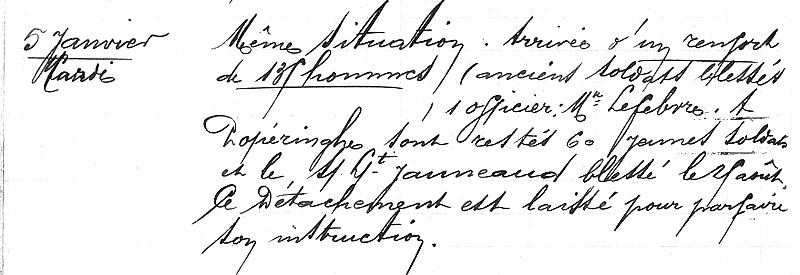 5 Janvier
Mardi
Même situation. Arrivée d'un renfort
de 135 hommes (anciens soldats blessés
1 officier: Mr Lefebvre. A
Popéringhe sont restés 60 jeunes soldats
et le S/ Gt Jauneaud blessé le août.
Ce Détachement est laissé pour parfaire
son instruction.